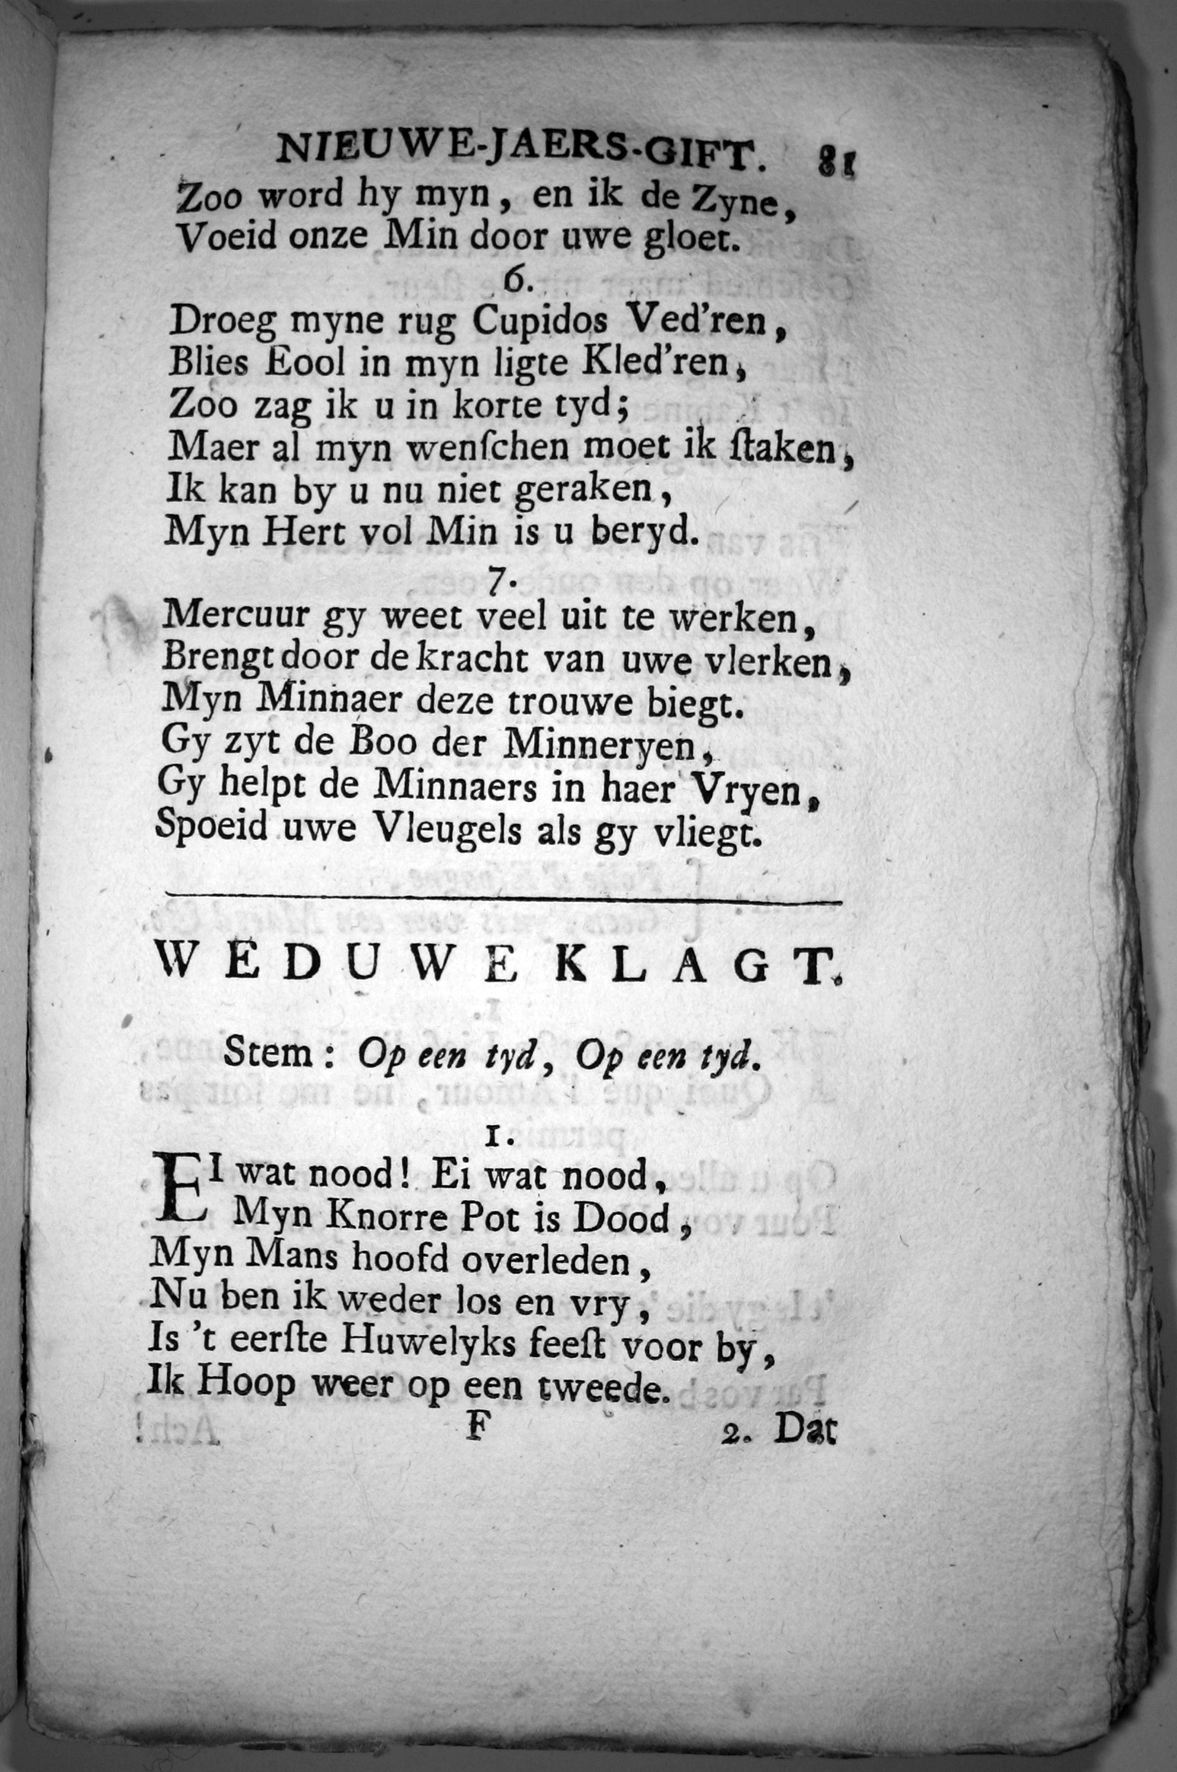 NIEUWE-JAERS-GIFT. 81
Zoo word hy myn, en ik de Zyne,
Voeid onze Min door uwe gloet.
6.
Droeg myne rug Cupidos Ved'ren,
Blies Eool in myn ligte Kled'ren,
Zoo zag ik u in korte tyd;
Maer al myn wenſchen moet ik ſtaken,
Ik kan by u nu niet geraken,
Myn Hert vol Min is u beryd.
7.
Mercuur gy weet veel uit te werken,
Brengt door de kracht van uwe vlerken,
Myn Minnaer deze trouwe biegt.
Gy zyt de Boo der Minneryen,
Gy helpt de Minnaers in haer Vryen,
Spoeid uwe Vleugels als gy vliegt.
WEDUWE KLAGT.
Stem: Op een tyd, Op een tyd.
1.
EI wat nood! Ei wat nood,
Myn Knorre Pot is Dood,
Myn Mans hoofd overleden,
Nu ben ik weder los en vry,
Is 't eerſte Huwelyks feeſt voor by,
Ik Hoop weer op een tweede.
F 2. Dat